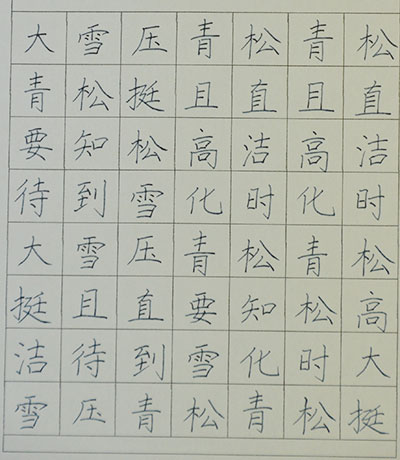 大雪压青松青松
青松挺且直且直
要知松高洁高洁
待到雪化时化时
大雪压青松青松
挺且直要知松高
洁待到雪化时大
雪压青松青松挺